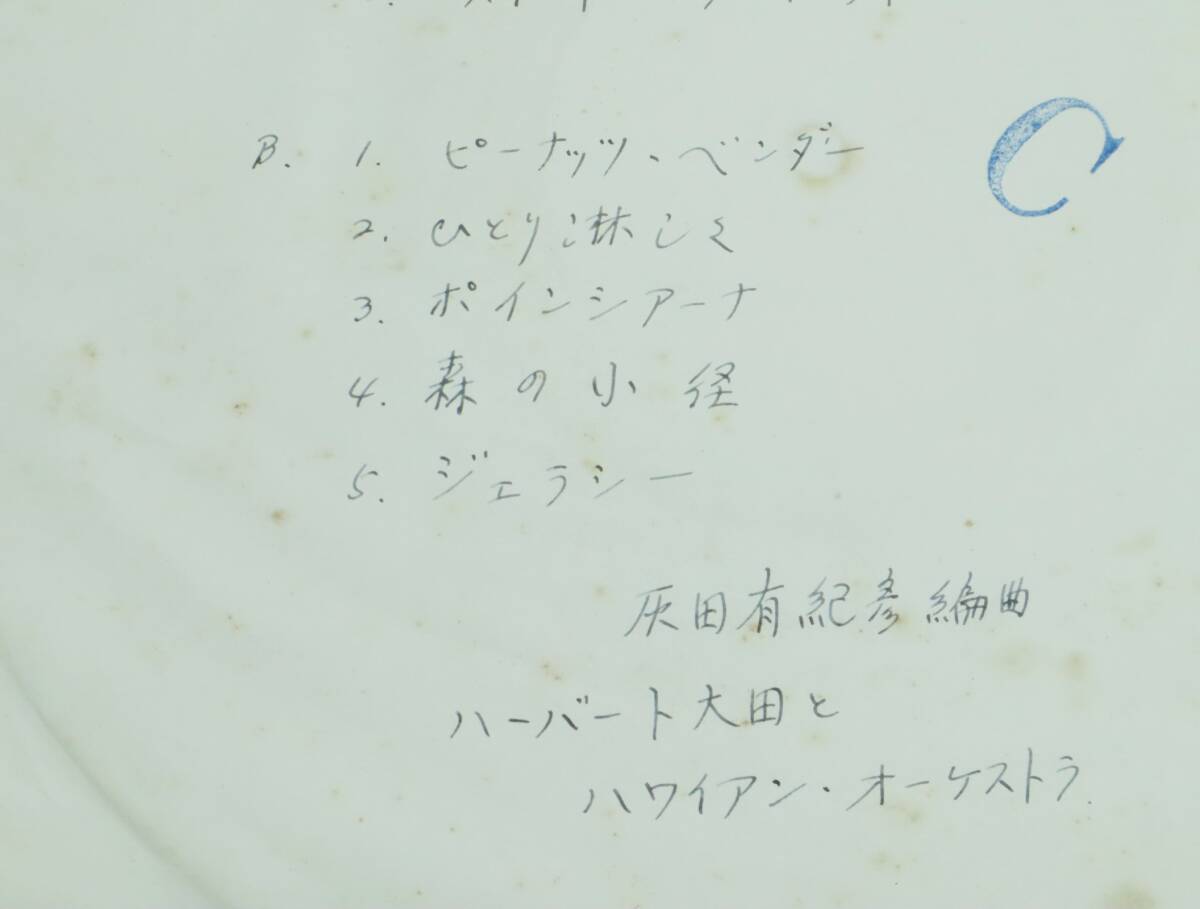 B. 1. ピーナッツ・ベンダー
C
2. ひとり淋しく
3. ポインシアーナ
4. 森の小径
5. ジェラシー
灰田有紀彦編曲
ハーバート大田と
ハワイアン・オーケストラ